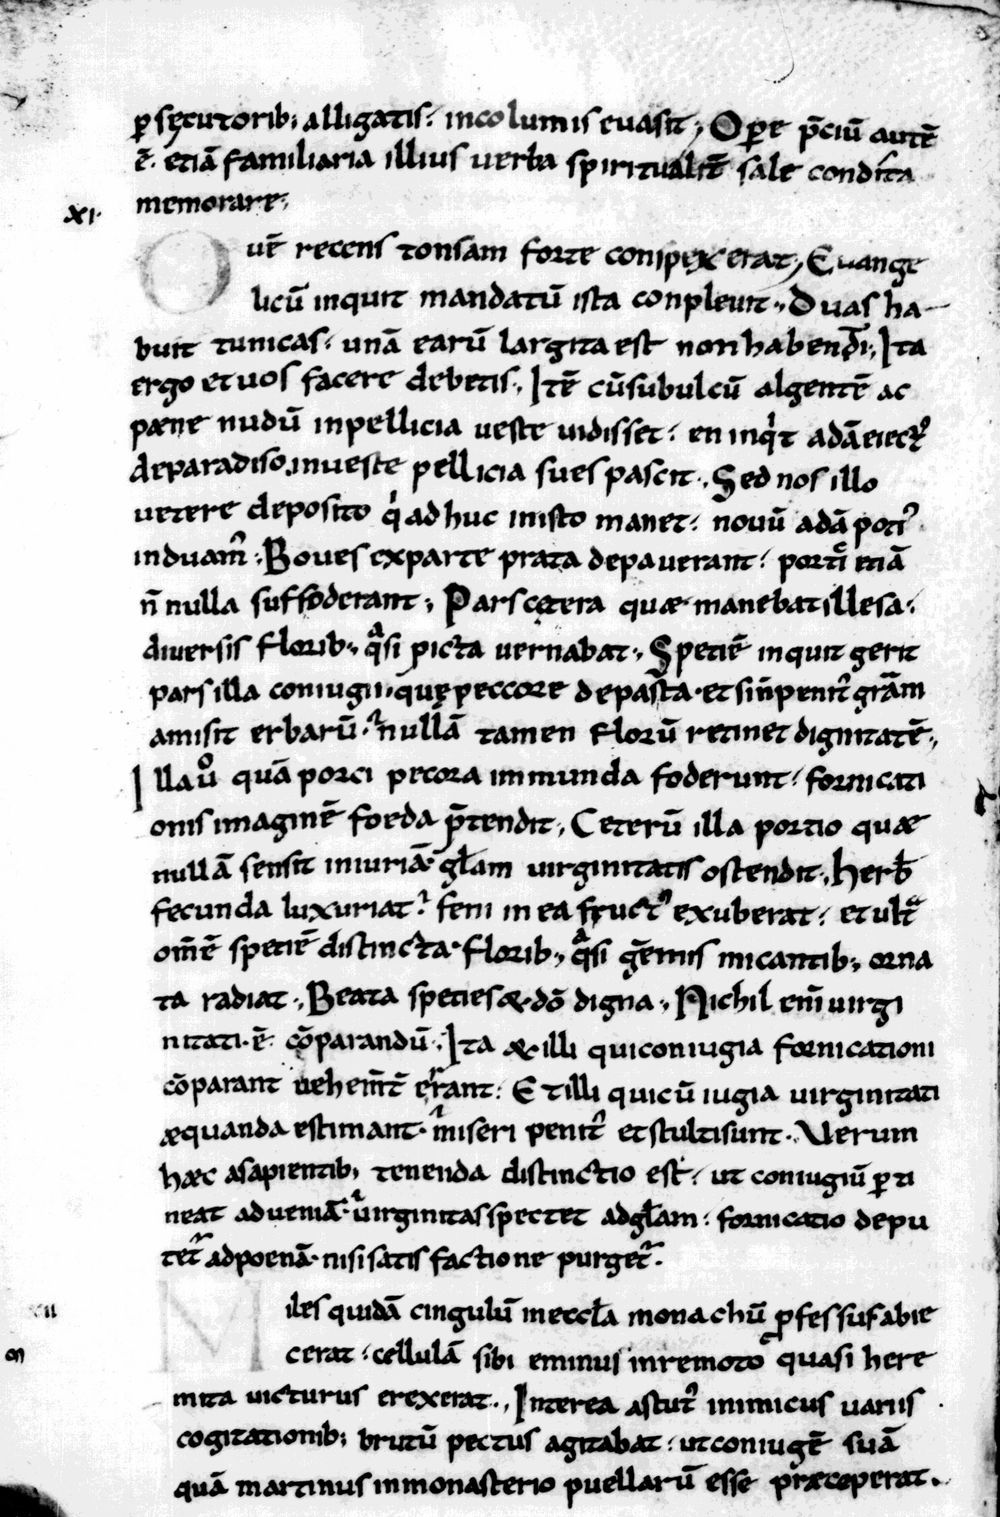 ꝑsęcutorib; alligatis. incolumis euasit; Opere p̄ciū autē
ē. etiā familiaria illius uerba spiritualit̄ sale condita
memorare;
XI.
Ouē recens tonsam forte conspexerat; Euange
licū inquit mandatū ista conpleuit; Duas ha
buit tunicas. unā earū largita est non habenti; Ita
ergo et uos facere debetis; Itē cū subulcū algentē ac
pæne nudū in pellicia ueste uidisset. en inqͥt adā eiectꝰ
de paradiso in ueste pellicia sues pascit; Sed nos illo
uetere deposito qͥ ad huc in isto manet. nouū adā potiꝰ
induam̄; Boues ex parte prata depauerant. porci etiā
n̄ nulla suffoderant; Pars cętera quæ manebat illesa.
diuersis florib; qͣsi picta uernabat; Spetiē inquit gerit
pars illa coniugii. quę peccore depasta. et si n̄ penitꝰ grām
amisit erbarū. nullā tamen florū retinet dignitatē;
Illa uͦ quā porci pecora immunda foderunt. fornicati
onis imaginē foeda p̄tendit; Ceterū illa portio quæ
nullā sensit iniuriā. gƚam uirginitatis ostendit; herƀ
fecunda luxuriat. feni in ea fructꝰ exuberat. et ultͣ
om̄ē spetiē distincta florib; qͣsi gēmis micantib; orna
ta radiat; Beata speties & dō digna; Nichil em̄ uirgi
nitati ē cōparandū; Ita & illi qui coniugia fornicationi
cōparant uehem̄t̄ errant. Et illi qui cūiugia uirginitati
æquanda estimant. miseri penitꝰ et stulti sunt. Verum
hæc a sapientib; tenenda distinctio est. ut coniugiū ꝑti
neat ad ueniā. uirginitas spectet ad gƚam. fornicatio depu
tet᷑ ad poenā. nisi satisfactione purget᷑.
XII
Miles quidā cingulū in eccƚa monachū ꝓfessus abie
cerat. cellulā sibi eminus in remoto quasi here
mita uicturus erexerat; Interea astutꝰ inimicus uariis
cogitationib; brutū pectus agitabat. ut coniugē suā
quā martinus in monasterio puellarū esse præceperat.